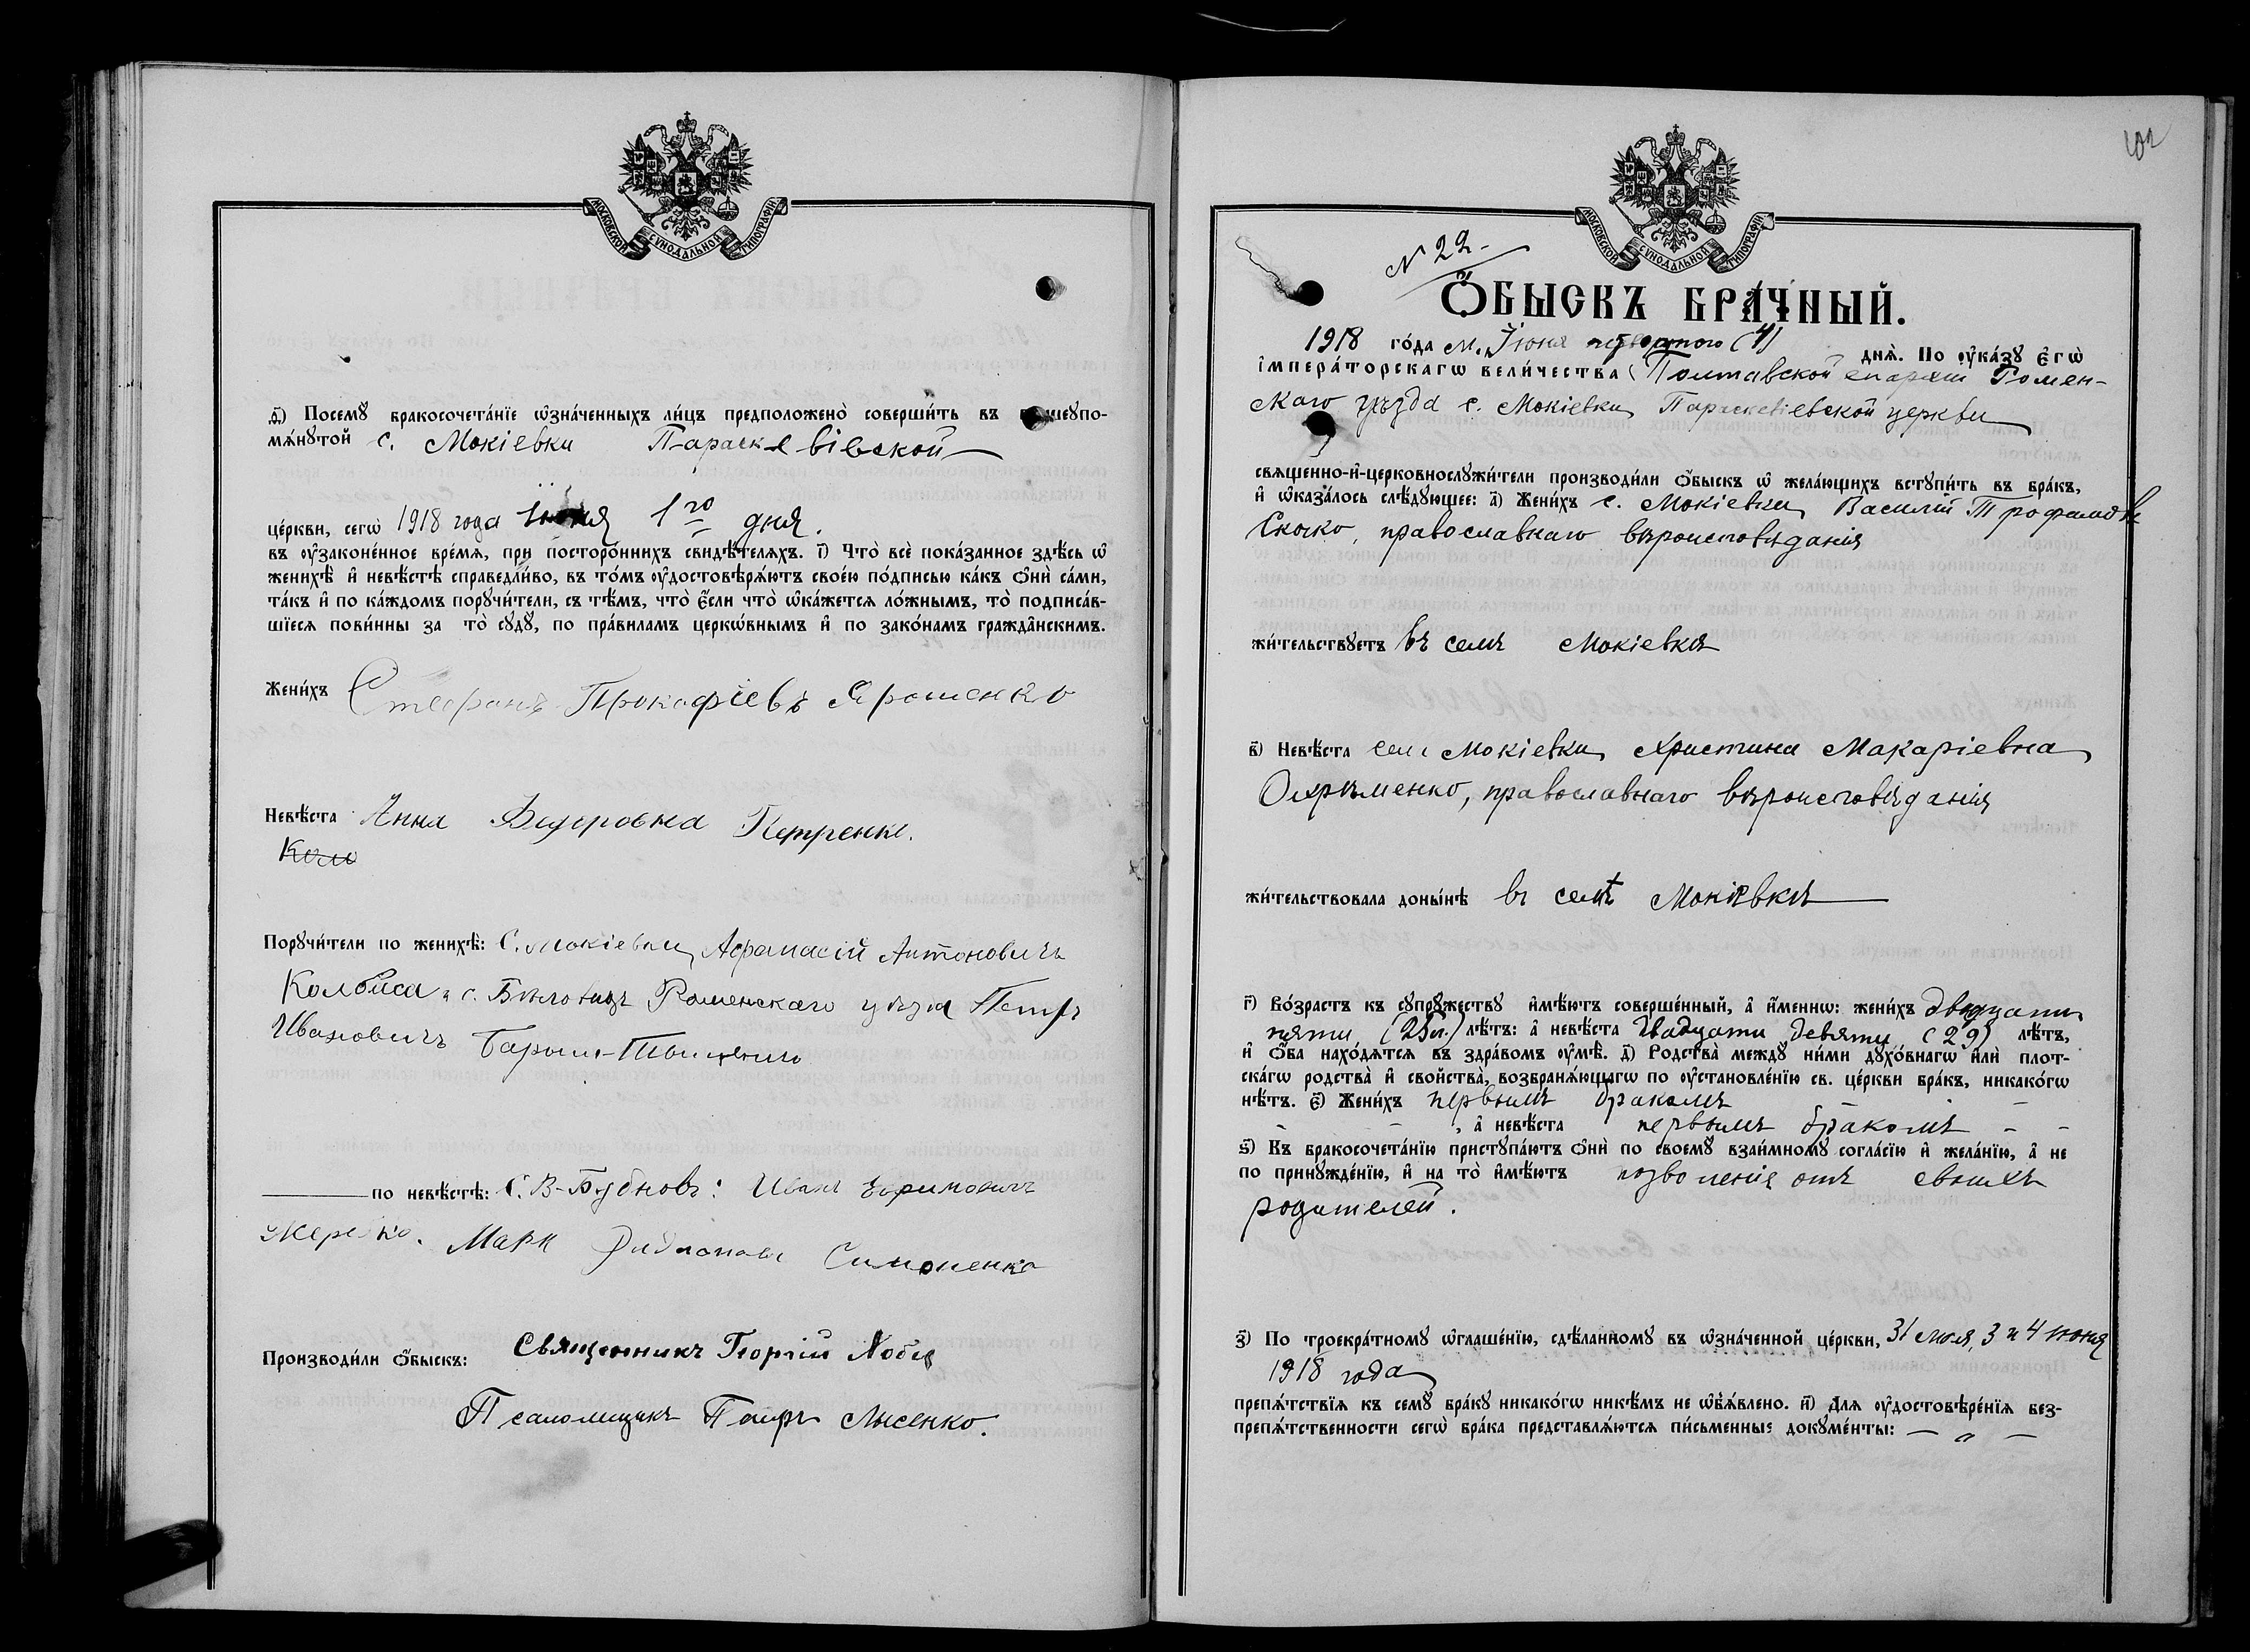 МОСКОВСКОЙ СѴНОДАЛЬНОЙ ТИПОГРАФІИ
ѳ҃) Посемꙋ̀ бракосочета́нїе ѡ҆зна́ченныхъ ли́цъ предположено̀ соверши́ть въ
мѧ́нꙋтой с. Мокіевки Параскевіевской
це́ркви, сегѡ̀ 1918 года Іюня 1го дня.
въ ᲂу҆законе́нное вре́мѧ, при посторо́ннихъ свидѣ́телѧхъ. і҃) Что̀ всѐ пока́занное здѣ́сь ѡ҆
женихѣ̀ и҆ невѣ́стѣ справедли́во, въ то́мъ ᲂу҆достовѣрѧ́ютъ свое́ю по́дписью ка́къ ѻ҆нѝ са́ми,
та́къ и҆ по ка́ждомъ порꙋчи́тели, съ тѣ́мъ, что̀ є҆́сли что̀ ѡ҆ка́жетсѧ ло́жнымъ, то̀ подписа́в-
шїесѧ пови́нны за то̀ сꙋдꙋ̀, по пра́виламъ церко́внымъ и҆ по зако́намъ гражда́нскимъ.
Жени́хъ Стефанъ Прокофіевъ Ярошенко
Невѣ́ста Анна Федоровна Петренко.
Порꙋчи́тели по женихѣ̀: С. Мокіевки, Афанасій Антоновичъ
Колбаса и с. Роменскаго уѣзда Петръ
Ивановичъ
по невѣ́стѣ: С. В-Бубновъ: Иванъ Ефимовичъ
Марк Симоненко
Производи́ли ѻ҆́быскъ: Священникъ Георгій
Псаломщикъ Лысенко.
102
МОСКОВСКОЙ СѴНОДАЛЬНОЙ ТИПОГРАФІИ
N 22-
Ѻ҆́БЫСКЪ БРА́ЧНЫЙ.
1918 го́да м. Іюня четвертого (4)
днѧ̀. По ᲂу҆ка́зꙋ є҆гѡ̀
і҆мпера́торскагѡ вели́чества Полтавской епархіи Ромен-
скаго уѣзда с. Мокіевки Параскевіевской церкви
свѧщенно-и҆-церковнослꙋжи́тели производи́ли ѻ҆́быскъ ѡ҆ жела́ющихъ встꙋпи́ть въ бра́къ,
и҆ ѡ҆каза́лось слѣ́дꙋющее: а҃) Жени́хъ с. Мокіевки, Василій Трофимовъ
православнаго вѣроисповѣданія
жи́тельствꙋетъ въ селѣ Мокіевкѣ
в҃) Невѣ́ста села Мокіевки, Христина Макаріевна
Охрѣменко, православнаго вѣроисповѣданія
жи́тельствовала доны́нѣ въ селѣ Мокіевкѣ
г҃) Во́зрастъ къ сꙋпрꙋ́жествꙋ и҆мѣ́ютъ соверше́нный, а҆ и҆́меннѡ: жени́хъ двадцати
пяти (25 л.) лѣ́тъ: а҆ невѣ́ста двадцати девяти (29) лѣ́тъ,
и҆ ѻ҆́ба нахо́дѧтсѧ въ здра́вомъ ᲂу҆мѣ̀. д҃) Родства̀ междꙋ̀ ни́ми дꙋхо́внагѡ и҆лѝ плот-
ска́гѡ родства̀ и҆ свойства̀, возбранѧ́ющагѡ по ᲂу҆становле́нїю св. це́ркви бра́къ, никако́гѡ
нѣ́тъ. є҃) Жени́хъ первымъ бракомъ -
- - , а҆ невѣ́ста первымъ бракомъ - -
ѕ҃) Къ бракосочета́нїю пристꙋпа́ютъ ѻ҆нѝ по своемꙋ̀ взаи́мномꙋ согла́сїю и҆ жела́нїю, а҆ не
по принꙋжде́нїю, и҆ на то̀ и҆мѣ́ютъ позволенія отъ своихъ
родителей.
з҃) По троекра́тномꙋ ѡ҆глаше́нїю, сдѣ́ланномꙋ въ ѡ҆зна́ченной це́ркви, 31 мая, 3 и 4 іюня
1918 года
препѧ́тствїѧ къ семꙋ̀ бра́кꙋ никако́гѡ никѣ́мъ не ѡ҆б̾ѧ́влено. и҃) Длѧ ᲂу҆достовѣре́нїѧ без-
препѧ́тственности сегѡ̀ бра́ка представлѧ́ютсѧ пи́сьменные докꙋме́нты: — " —